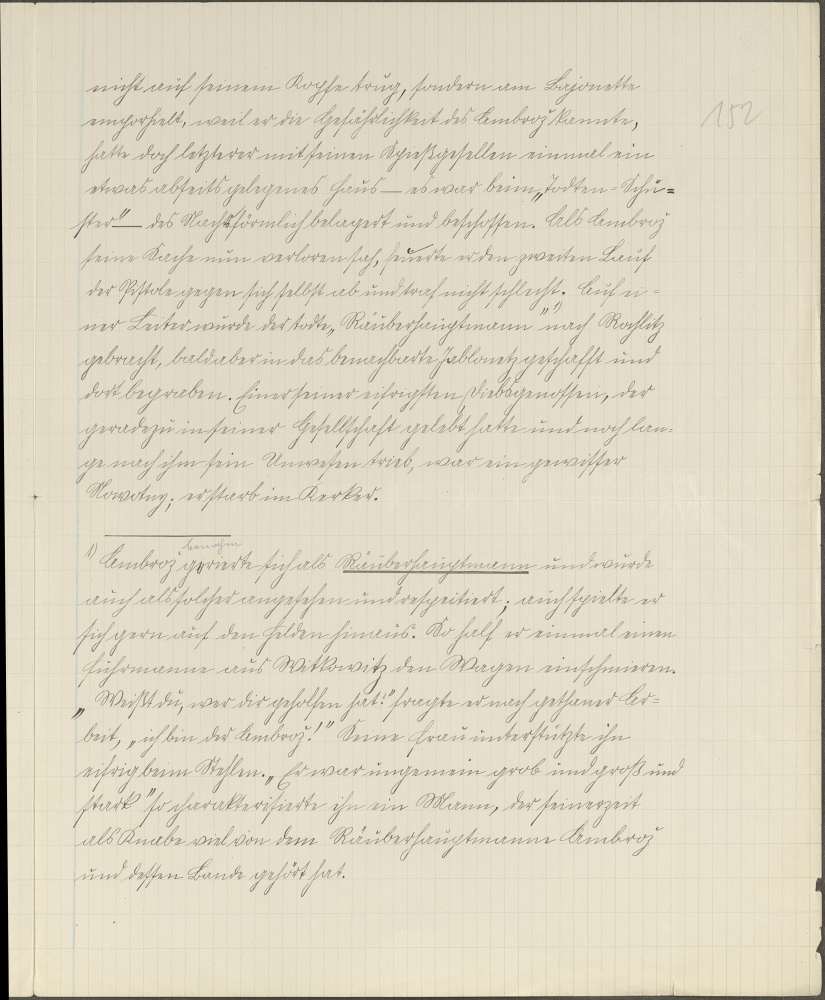 152
nicht auf seinem Kopfe trug, sondern am Bajonette
emporhielt, weil er die Gefährlichkeit des Ambrož kannte,
hatte doch letzterer mit seinen Spießgesellen einmal ein
etwas abseits gelegenes Haus — es war beim „Todten-Schu-
ster" — des Nachts förmlich belagert und beschossen. Als Ambrož
seine Sache nun verloren sah, feuerte er den zweiten Lauf
der Pistole gegen sich selbst ab und traf nicht schlecht. Auf ei-
ner Leiter wurde der todte „Räuberhauptmann" 1) nach Rochlitz
gebracht, bald aber in das benachbarte Jablonetz geschafft und
dort begraben. Einer seiner eifrigsten Diebsgenossen, der
geradezu in seiner Gesellschaft gelebt hatte und noch lan-
ge nach ihm sein Unwesen trieb, war ein gewisser
Nowotny; er starb im Kerker.
benahm
1) Ambrož gerierte sich als Räuberhauptmann und wurde
auch als solcher angesehen und respectiert; auch spielte er
sich gern auf den Helden hinaus. So half er einmal einem
Fuhrmanne aus Witkowitz den Wagen einschmieren.
„Weißt du, wer dir geholfen hat?" fragte er nach gethaner Ar-
beit, „ich bin der Ambrož!" Seine Frau unterstützte ihn
eifrig beim Stehlen. „Er war ungemein grob und groß und
stark" so charakterisierte ihn ein Mann, der seinerzeit
als Knabe viel von dem Räuberhauptmanne Ambrož
und dessen Bande gehört hat.